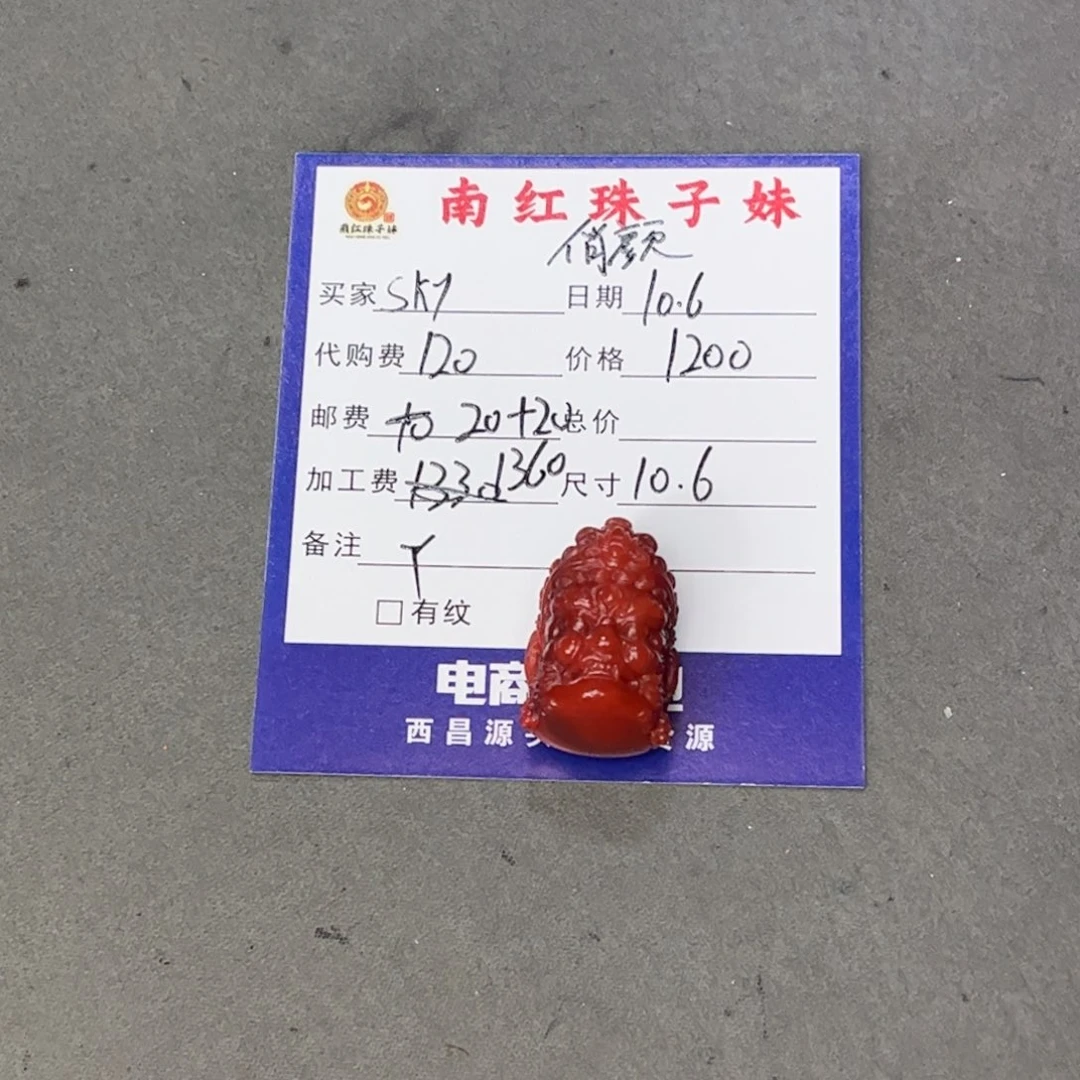 南红珠子妹
南红珠子妹
俏颜
买家 SKY 日期 10.6
代购费 120 价格 1200
邮费 20+20 总价
加工费 1360 尺寸 10.6
备注 Y
□有纹
电商
西昌源 源